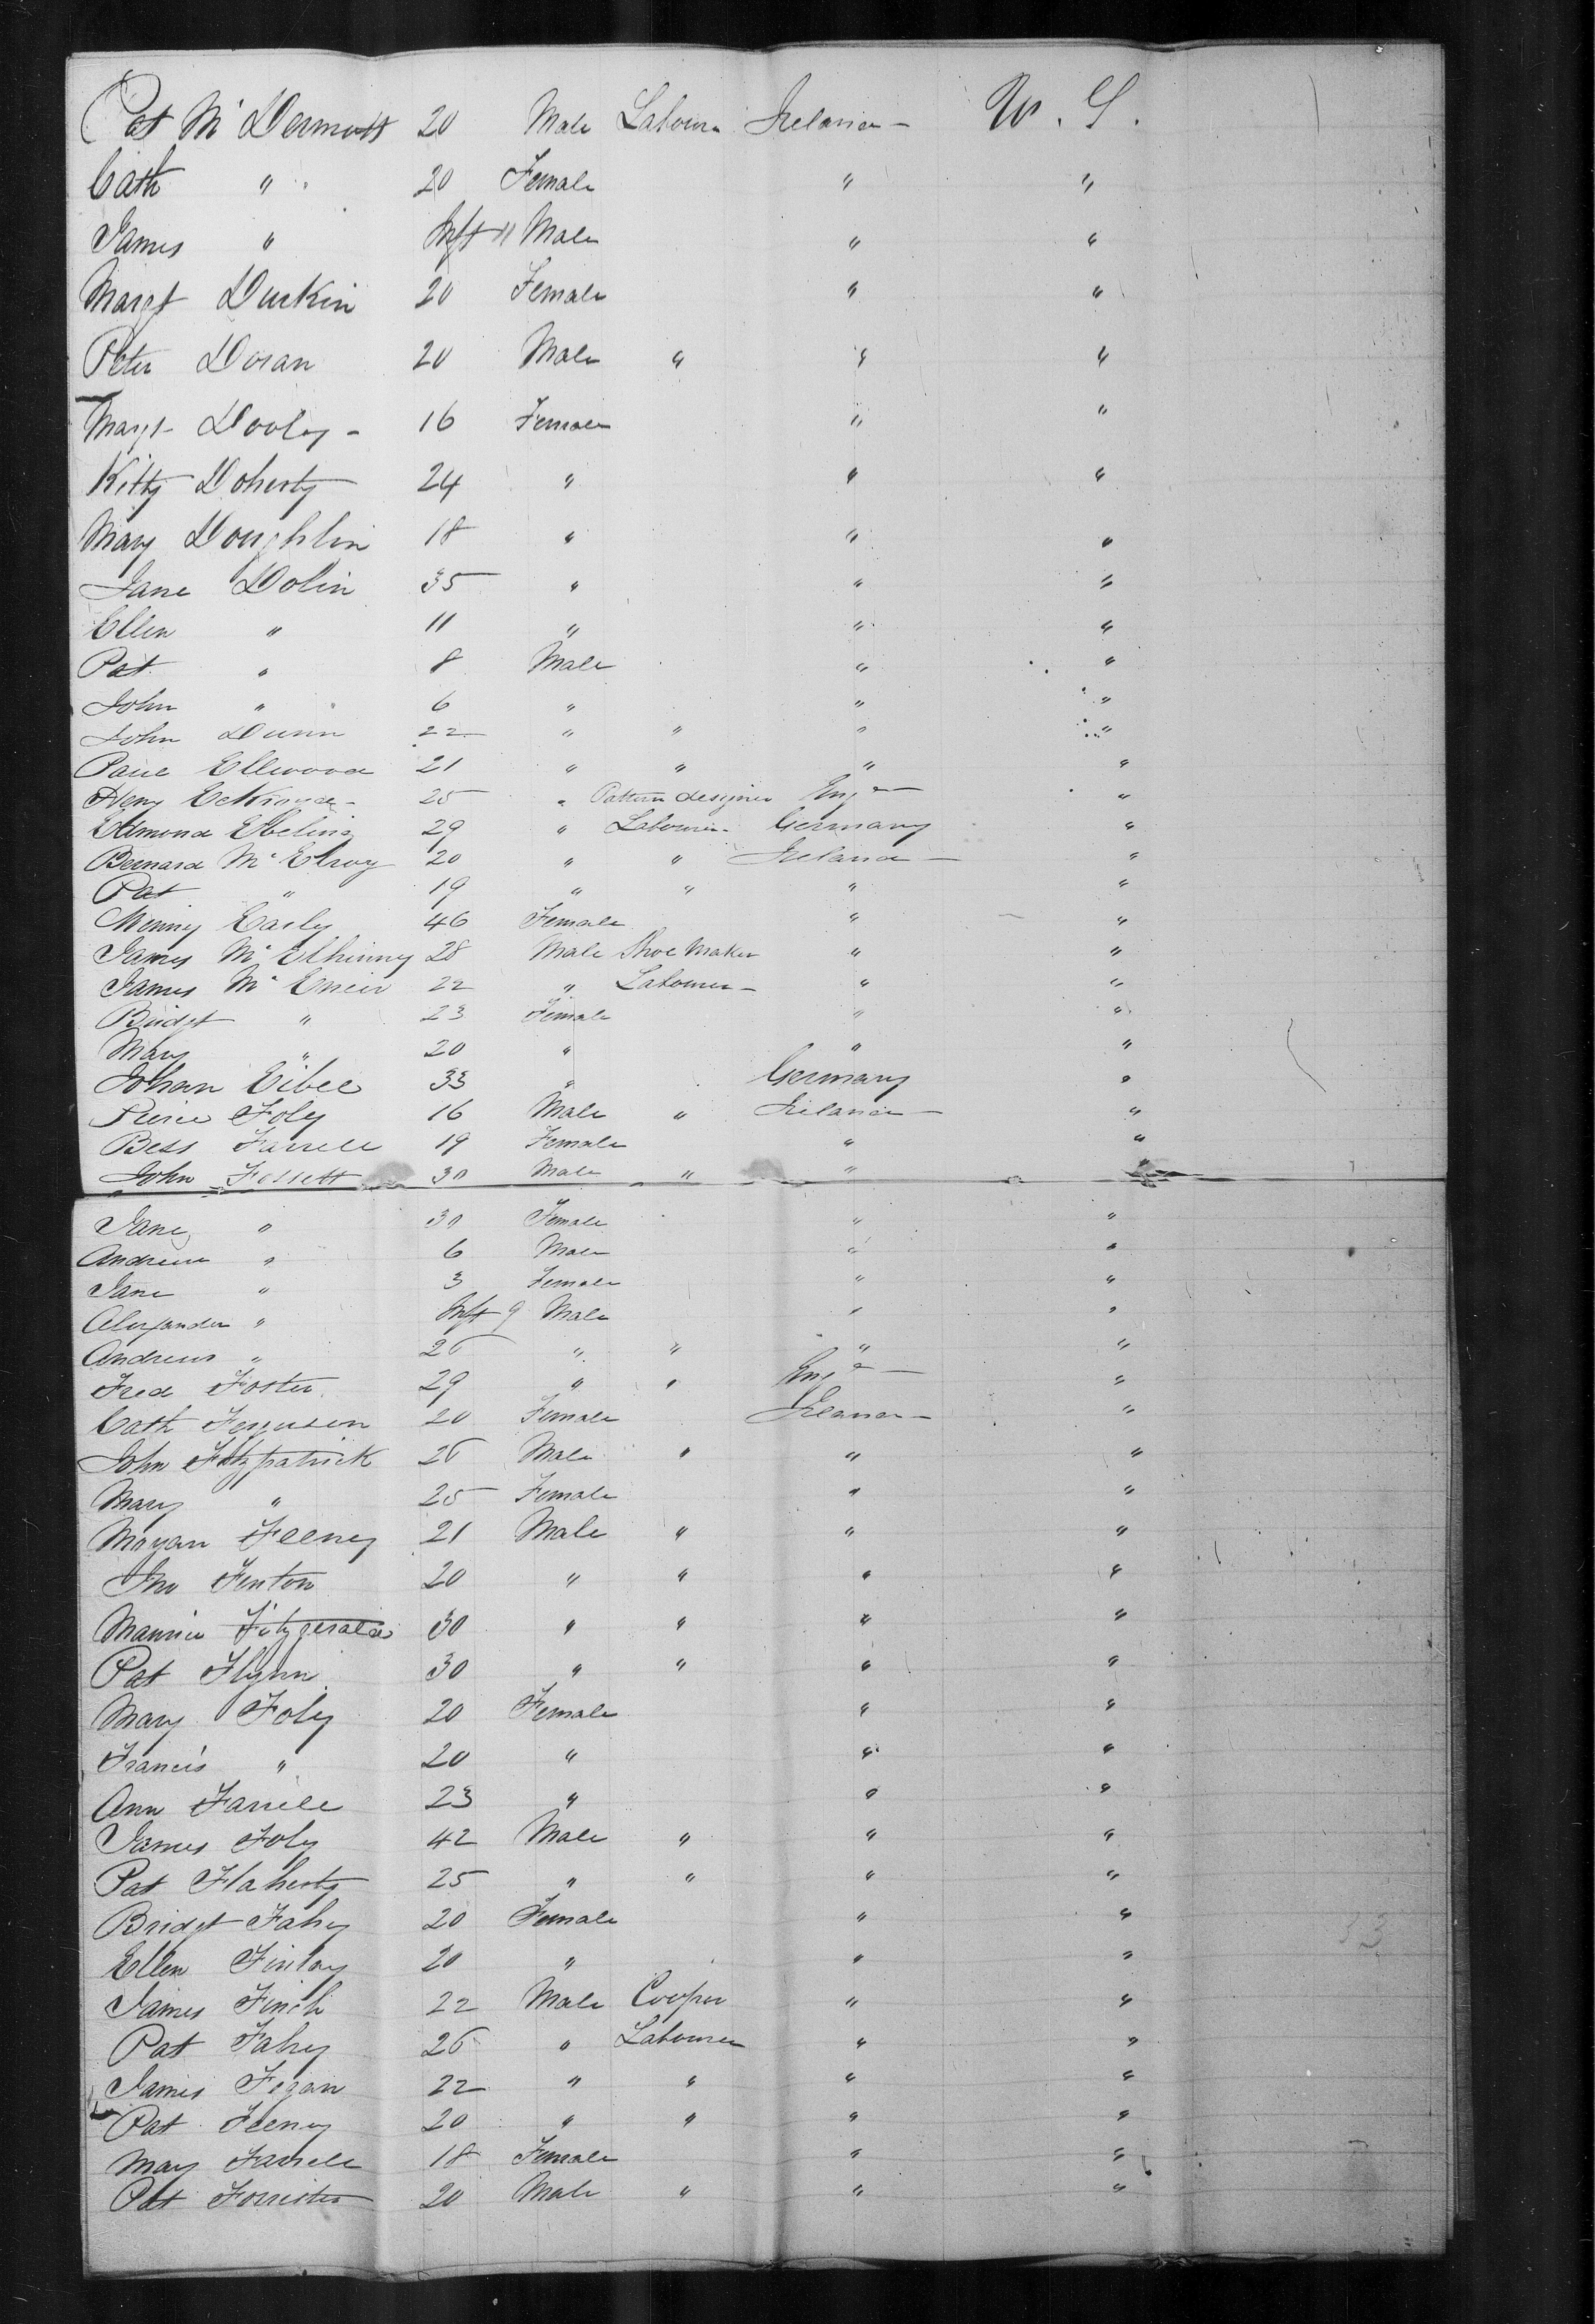 Pat McDermott 20 Male Labourer Ireland U. S.
Cath " 20 Female " "
James " Inft 11 Male " "
Margt Durkin 20 Female " "
Peter Doran 20 Male " " "
Margt Dooley 16 Female " "
Kitty Doherty 24 " " "
Mary Doughlin 18 " " "
Jane Dolin 35 " " "
Ellen " 11 " " "
Pat " 8 Male " "
John " 6 " " "
John Dunn 22 " " " "
Paul Ellwood 21 " " " "
Heny 25 " Pattern designer Engd "
Edmond Ebeling 29 " Labourer Germany "
Bernard McElroy 20 " " Ireland "
Pat " 19 " " " "
Early 46 Female " "
James McElhinny 28 Male Shoe Maker " "
James Mc 22 " Labourer " "
Bridgt " 23 Female " "
Mary " 20 " " "
Johan Eibel 33 " Germany "
Pierce Foley 16 Male " Ireland "
Bess Farrell 19 Female " "
John Fossett 30 Male " "
Jane " 30 Female " "
Andrew " 6 Male " "
Jane " 3 Female " "
Alexander " Inft 9 Male " "
Andrew " 26 " " " "
Fred Foster 29 " " Engd "
Cath Ferguson 20 Female Ireland "
John Fitzpatrick 26 Male " " "
Mary " 25 Female " "
Feeney 21 Male " " "
Jno Fenton 20 " " " "
Maurice Fitzgerald 30 " " " "
Pat Flynn 30 " " " "
Mary Foley 20 Female " "
Francis " 20 " " "
Ann Farrell 23 " " "
James Foley 42 Male " " "
Pat Flaherty 25 " " " "
Bridgt Fahey 20 Female " "
Ellen Finlay 20 " " "
James Finch 22 Male Cooper " "
Pat Fahey 26 " Labourer " "
James Fegan 22 " " " "
Pat Feeney 20 " " " "
Mary Farrell 18 Female " "
Pat Forrister 20 Male " " "